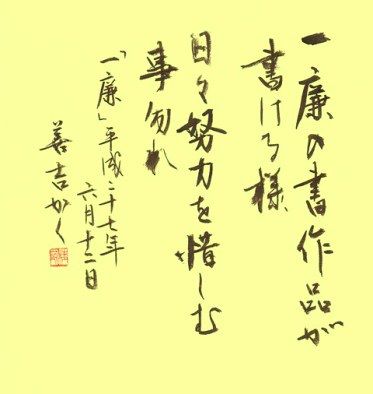 一廉の書作品が
書ける様
日々努力を惜しむ
事勿れ
「一廉」平成二十七年
六月十二日
善吉かく